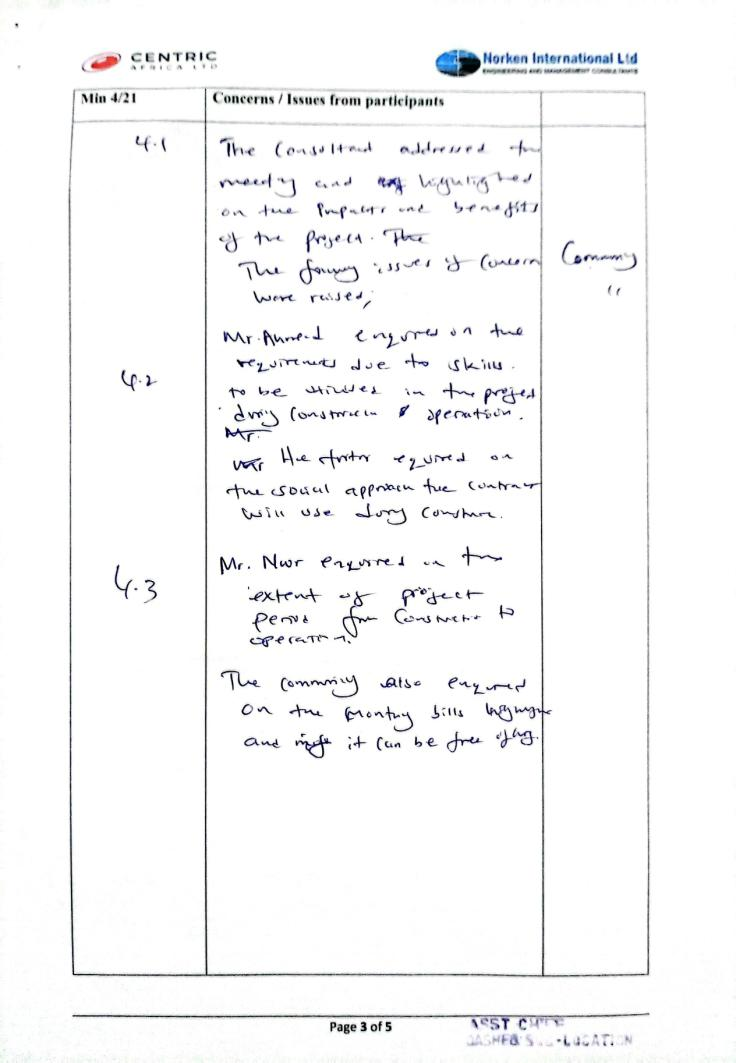 CENTRIC
AFRICA LTD
Norken International Ltd
ENGINEERING AND MANAGEMENT CONSULTANTS
Min 4/21
Concerns / Issues from participants
4.1
The Consultant addressed the
meeting and highlighted
on the Impacts and benefits
of the project. The
The issues of concern
were raised;
Community
"
4.2
Mr. Ahmed enquired on the
requirements due to skills
to be utilized in the project
during construction & operation.
Mr.
He further enquired on
the social approach the contractor
will use during construction.
4.3
Mr. Nur enquired on the
extent of project
period from construction to
operation.
The community also enquired
on the monthly bills
and if it can be free
Page 3 of 5
ASST CHIEF
SUB-LOCATION